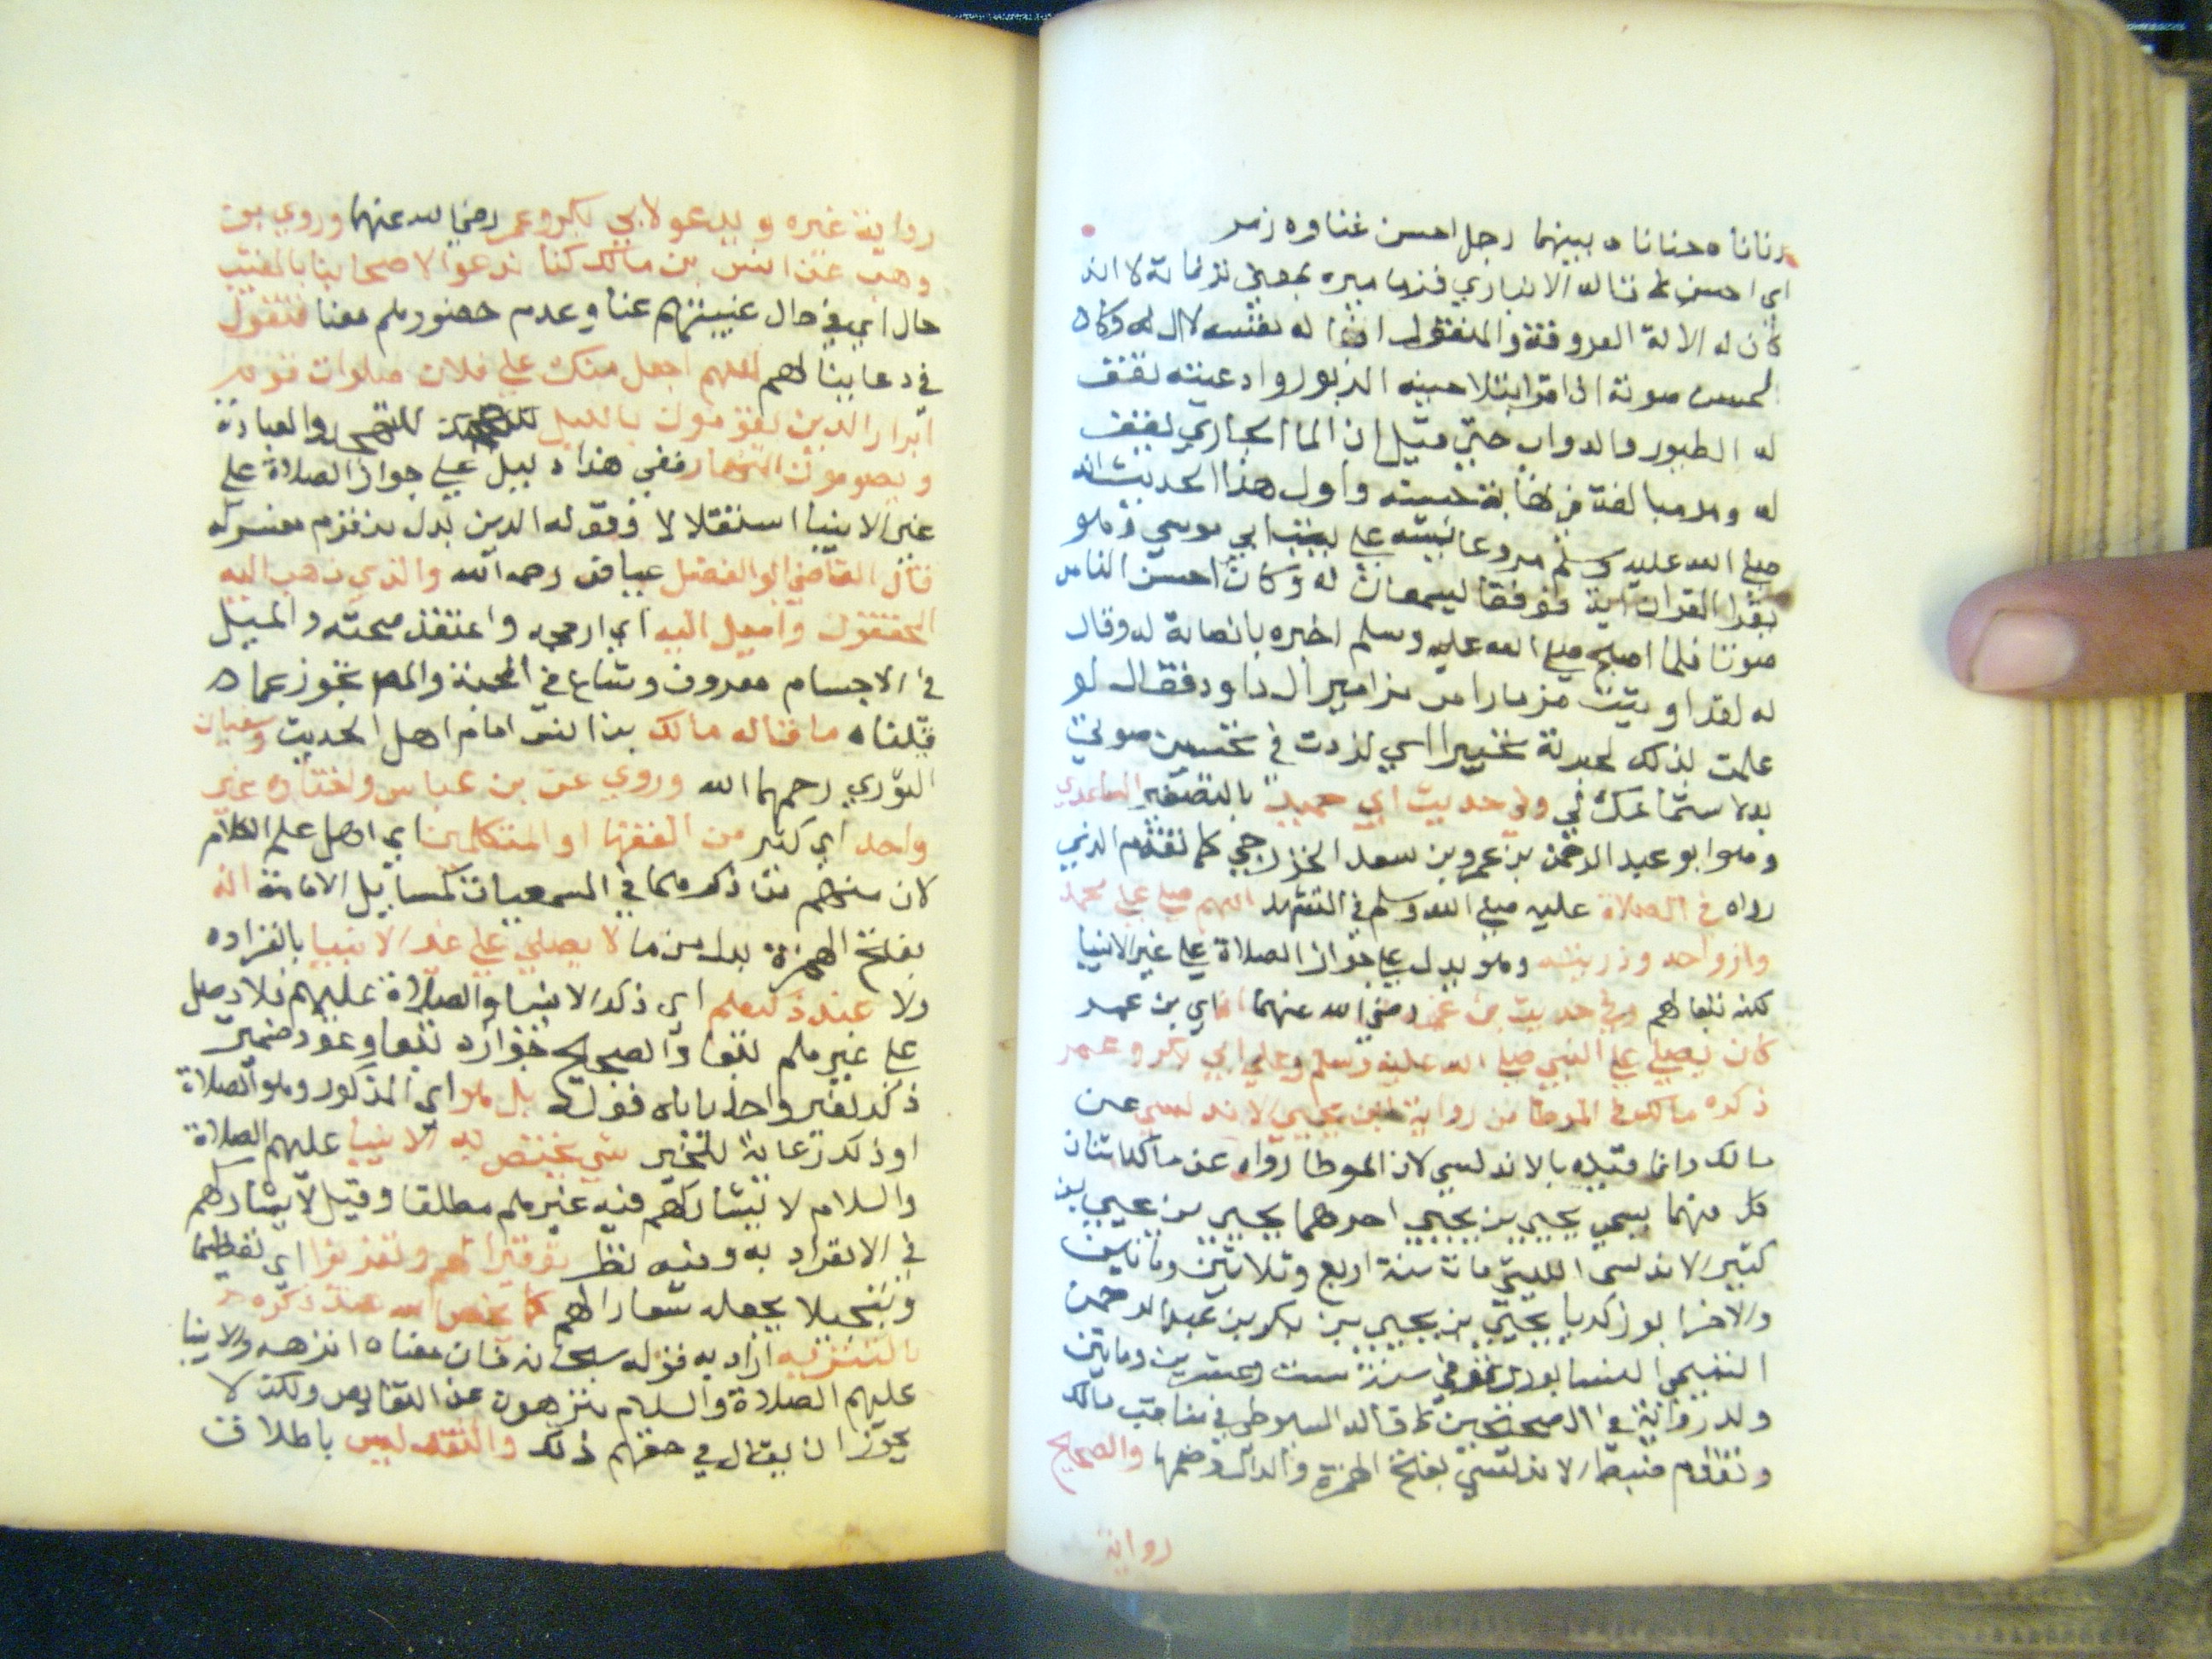 رنانا ه حنانا ه بينهما رجل احسن غناوه زمر
اي احسن كما قاله الانباري فمزاميره بمعني ترنماته لا انه
كان له الالة المعروفة والمنقول له نفسه لال له وكان
لحسن صوته اذا قرا بتلاحينه الزبور وادعيته تقف
له الطيور والدواب حتي قيل ان الما الجاري ليقف
له وهو مبالغة في حسنه واول هذا الحديث انه
صلي الله عليه وسلم مر وعائشة علي بيت ابي موسي وهو
يقرا القران فوقفا ليسمعان له وكان احسن الناس
صوتا فلما اصبح صلي الله عليه وسلم اخبره بانصاته له وقال
له لقد اوتيت مزمارا من مزامير ال داود فقال لو
علمت لذلك لحبرته تحبيرا اي لزدت في تحسين صوتي
بدلا ستماعك لي وفي حديث ابي حميد بالتصغير الساعدي
وهو ابو عبد الرحمن بن عمرو بن سعد الخزرجي كما تقدم الذي
رواه في الصلاة عليه صلي الله وسلم في التشهد اللهم صل علي محمد
وازواجه وذريته وهو يدل علي جواز الصلاة علي غير الانبيا
لكنه تبعا لهم وفي حديث بن عمر رضي الله عنهما انه اي بن عمر
كان يصلي علي النبي صلي الله عليه وسلم وعلي ابي بكر وعمر
ذكره مالك في الموطا من رواية يحيي الاندلسي عن
مالك وانما قيده بالاندلسي لان الموطا رواه عن مالك اثنان
كل منهما يسمي يحيي بن يحيي احدهما يحيي بن يحيي بن
كثير الاندلسي الليثي مات سنة اربع وثلاثين ومايتين
والاخر ابو زكريا يحيي بن يحيي بن بكر بن عبد الرحمن
التميمي النيسابوري توفي سنة ست وعشرين ومايتين
وله رواية في الصحيحين كما قاله السيوطي في مناقب مالك
وتقدم ضبط الاندلسي بفتح الهمزة والدال وضمها والصحيح
رواية
رواية غيره ويدعو لابي بكر وعمر رضي الله عنهما وروي بن
وهب عن انس بن مالك كنا ندعو لاصحابنا بالغيب
حال اي في حال غيبتهم عنا وعدم حضورهم معنا فنقول
في دعاينا لهم اللهم اجعل منك علي فلان صلوات قوم
ابرار الذين يقومون بالليل للتهجد والعبادة
ويصومون النهار ففي هذا دليل علي جواز الصلاة علي
غير الانبيا استقلالا وقوله الذين بدل من قوم مفسر له
قال القاضي ابو الفضل عياض رحمه الله والذي ذهب اليه
المحققون واميل اليه اي ارجحه واعتقد صحته والميل
في الاجسام معروف وشاع في المحبة والمراد تجوز عما
قلناه ما قاله مالك بن انس امام اهل الحديث وسفيان
الثوري رحمهما الله وروي عن بن عباس واختاره غير
واحد اي كثير من الفقها او المتكلمين اي اهل علم الكلام
لان منهم من ذكرهما في السمعيات كمسايل الامامة انه
بفتح الهمزة بدل من ما لا يصلي علي غير الانبيا بانفراده
ولا عند ذكرهم اي ذكر الانبيا والصلاة عليهم فلا يصل
علي غيرهم تبعا والصحيح جوازه تبعا وعود ضمير
ذكر لغير واحد ياباه قوله بل هو اي المذكور وهو الصلاة
او ذكر رعاية للخبر شي يختص به الانبيا عليهم الصلاة
والسلام لا يشاركهم فيه غيرهم مطلقا وقيل لا يشاركهم
في الانفراد به وفيه نظر توقيرا لهم وتعزيزا اي تعظيما
وتبجيلا بجعله شعارا لهم كما يخص الله عند ذكره
بالتنزيه اراد به قوله سبحانه فان معناه انزهه والانبيا
عليهم الصلاة والسلام منزهون عن النقايص ولكن لا
يجوز ان يقال في حقهم ذلك والتقديس باطلاق